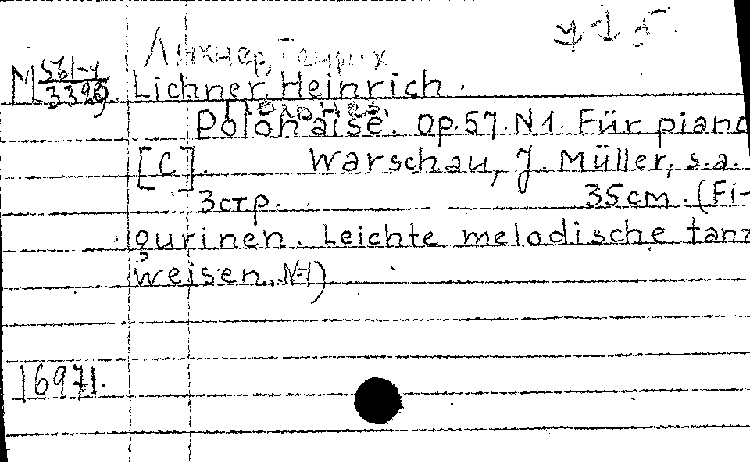 у15
Лихнер, Генрих
M 561-4
3399. Lichner, Heinrich.
Полонез.
Polonaise. Op.57. N1. Für piano
[C]. Warschau, J. Müller, s.a.
3стр. 35cm. (Fi-
gurinen. Leichte melodische tanz
weisen, N-1)
16971.